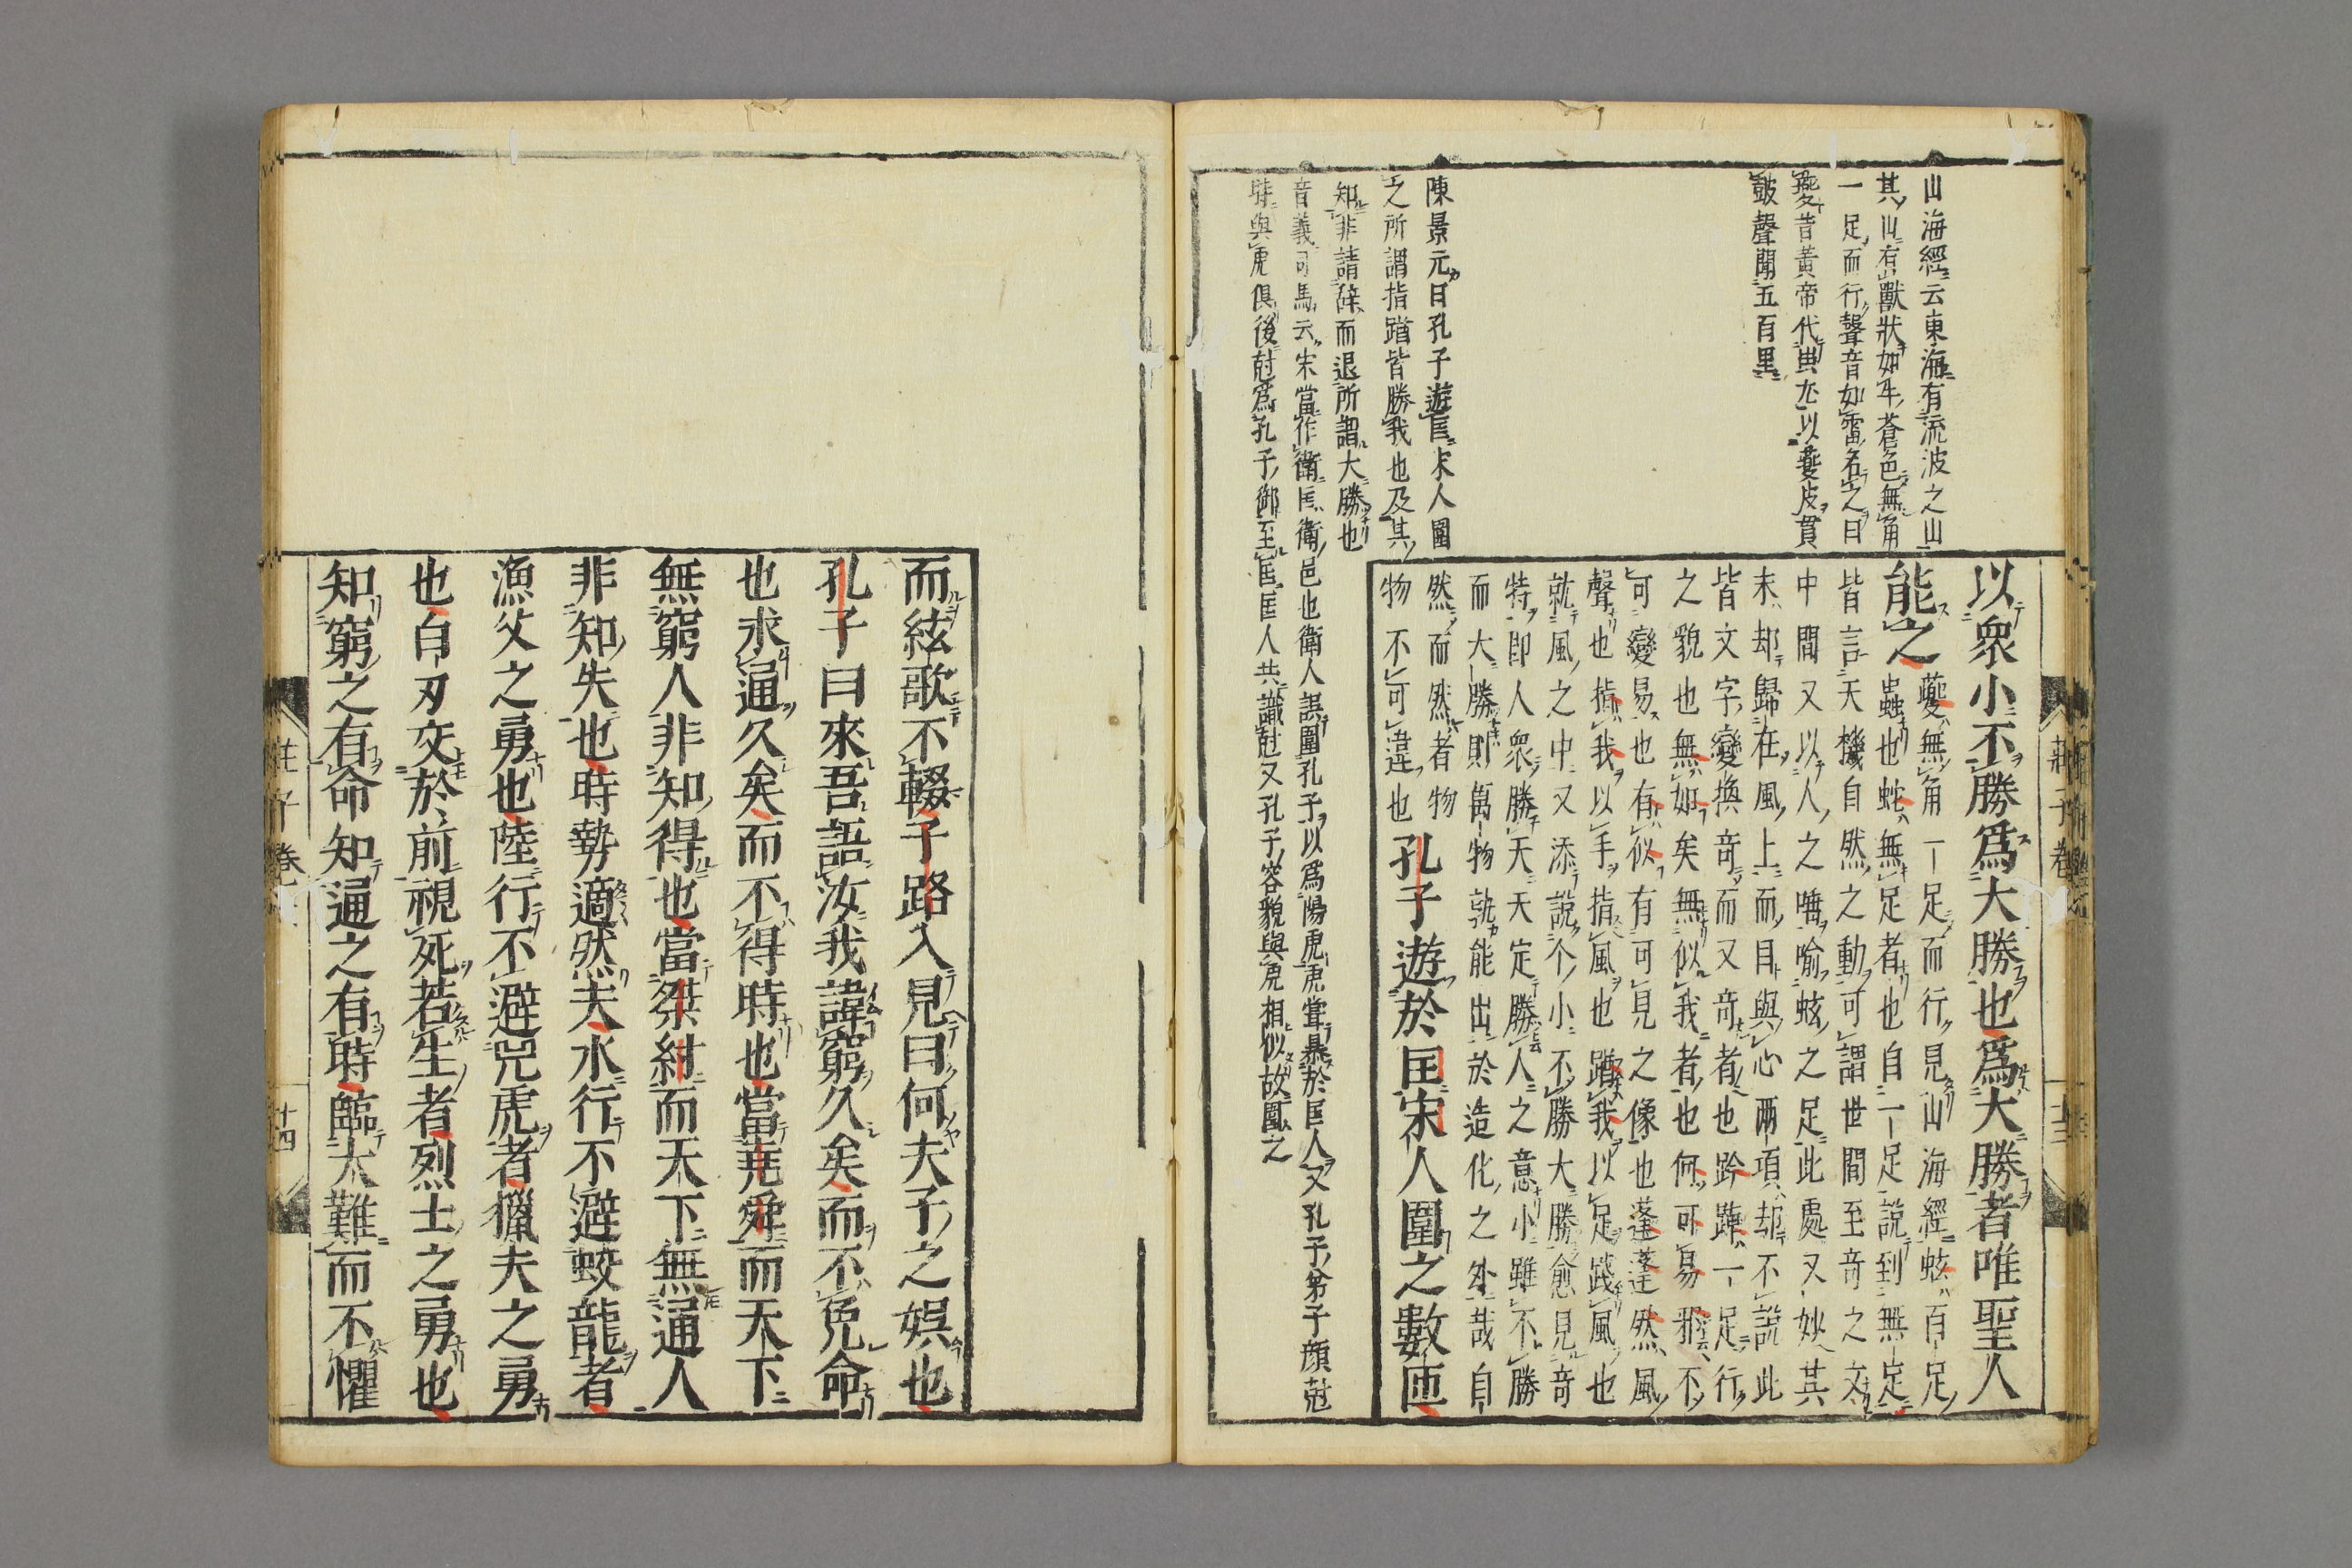 山海經云東海有流波之山
其山有獸狀如牛蒼色無角
一足而行聲音如雷名之曰
夔昔黃帝代典尤以夔皮貫
皷聲聞五百里
陳景元曰孔子遊匡宋人圍
之所謂指蹭皆勝我也及其
知非請辭而退所謂大勝也
音義司馬云宋當作衛匡衛邑也衛人誤圍孔子以為陽虎虎嘗暴於匡人又孔子弟子顏尅
時與虎俱後尅為孔子御至匡匡人共識尅又孔子容貌與虎相似故圍之
以衆小不勝爲大勝也爲大勝者唯聖人
能之
夔無角一足而行見山海經蚿百足
蟲也蛇無足者也自一足說到無足
皆言天機自然之動可謂世間至奇之文
中間又以人之唾喻蚿之足此處又妙其
末却歸在風上而目與心兩項却不說此
皆文字變換奇而又奇者也跉踔一足行
之貌也無如矣無似我者也何可易邪不
可變易也有似有可見之像也蓬蓬然風
聲也指我以手指風也蹭我以足踐風也
就風之中又添說个小不勝大勝愈見奇
特即人衆勝天天定勝人之意小雖不勝
而大勝則萬物孰能出於造化之外哉自
然而然者物
物不可違也
孔子遊於匡宋人圍之數匝
而絃歌不輟子路入見曰何夫子之娛也
孔子曰來吾語汝我諱窮久矣而不免命
也求通久矣而不得時也當堯舜而天下
無窮人非知得也當桀紂而天下無通人
非知失也時勢適然夫水行不避蛟龍者
漁父之勇也陸行不避兕虎者獵夫之勇
也白刃交於前視死若生者烈士之勇也
知窮之有命知通之有時臨大難而不懼
莊子卷
十四
莊子卷
十三